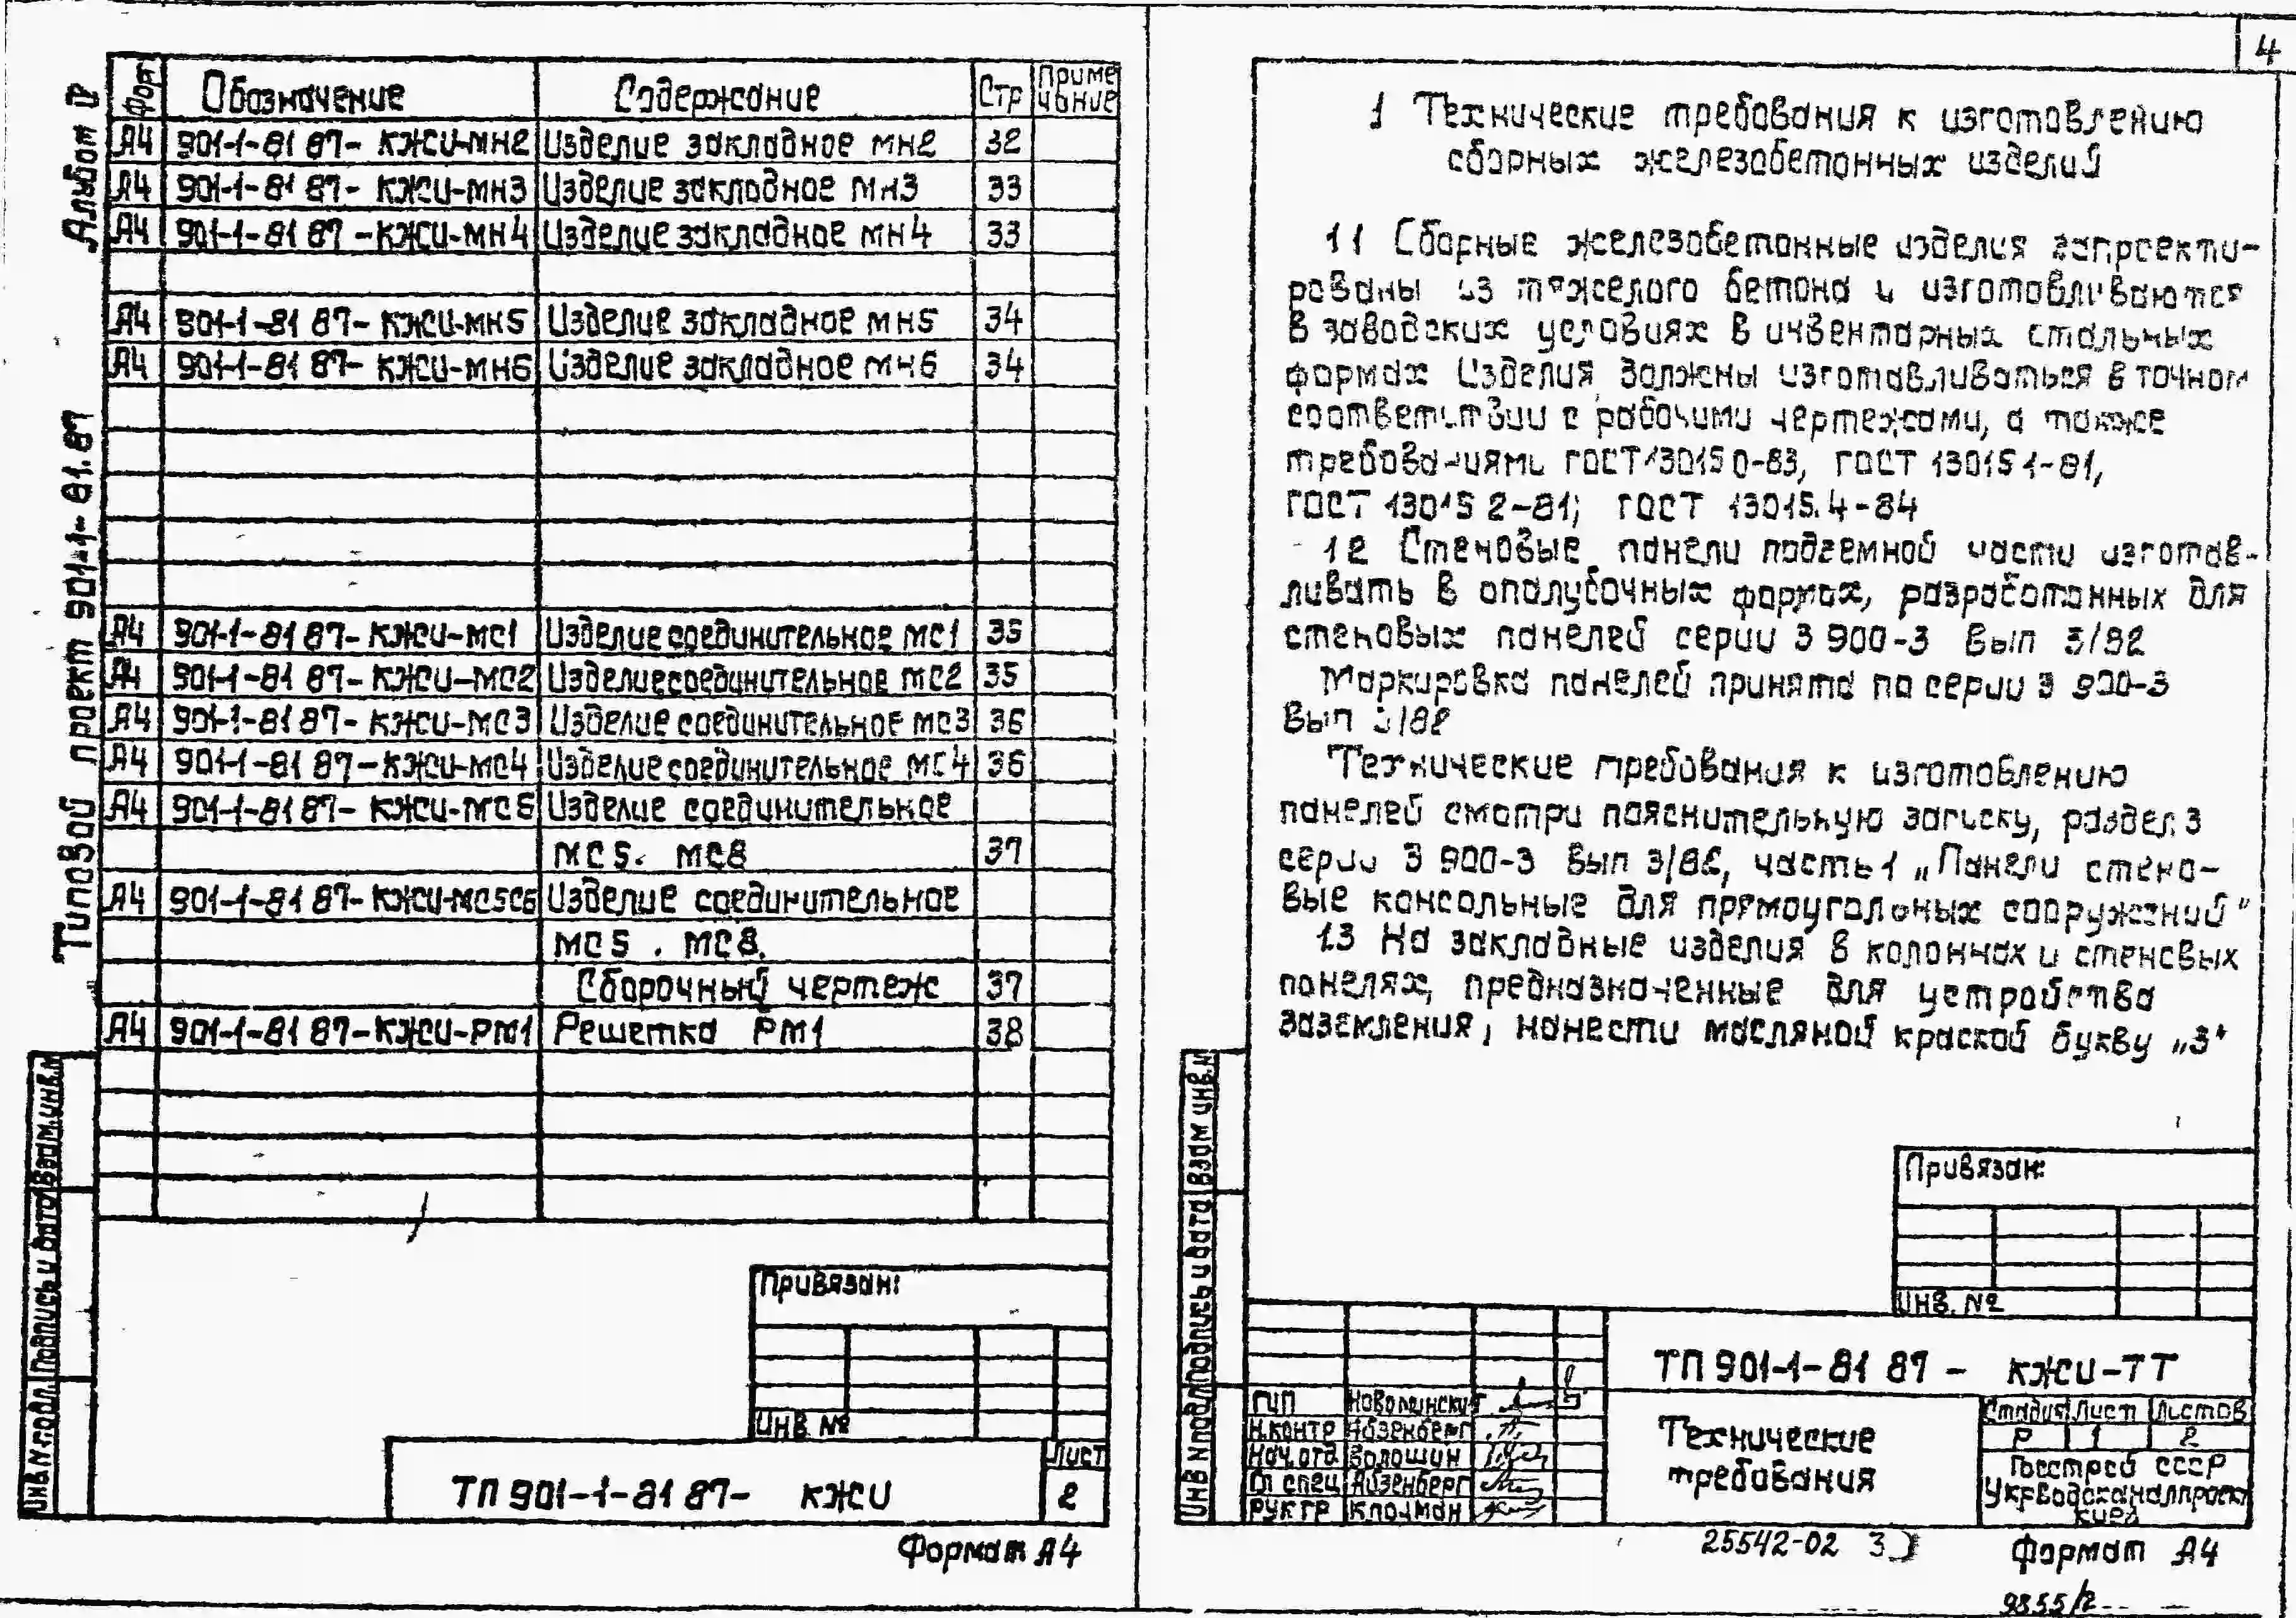 4
Альбом IV
Типовой проект 901-1-81.87
Фор Обозначение Содержание Стр Приме
чание
А4 901-1-81 87- КЖИ-МН2 Изделие закладное МН2 32
А4 901-1-81 87- КЖИ-МН3 Изделие закладное МН3 33
А4 901-1-81 87 -КЖИ-МН4 Изделие закладное МН4 33
А4 901-1-81 87- КЖИ-МН5 Изделие закладное МН5 34
А4 901-1-81 87- КЖИ-МН6 Изделие закладное МН6 34
А4 901-1-81 87- КЖИ-МС1 Изделие соединительное МС1 35
А4 901-1-81 87- КЖИ-МС2 Изделие соединительное МС2 35
А4 901-1-81 87- КЖИ-МС3 Изделие соединительное МС3 36
А4 901-1-81 87-КЖИ-МС4 Изделие соединительное МС4 36
А4 901-1-81 87- Изделие соединительное
МС5. МС8 37
А4 901-1-81 87- Изделие соединительное
МС5 . МС8.
Сборочный чертеж 37
А4 901-1-81 87-КЖИ-РМ1 Решетка РМ1 38
Привязан:
Инв. №
ТП 901-1-81 87- КЖИ
Лист
2
Формат А4
Инв N подл. Подпись и дата Взам.инв.N
1 Технические требования к изготовлению
сборных железобетонных изделий
1 1 Сборные железобетонные изделия запроекти-
рованы из тяжелого бетона и изготовливаются
в заводских условиях в инвентарных стальных
формах Изделия должны изготавливаться в точном
соответствии с рабочими чертежами, а также
требованиями ГОСТ 13015 0-83, ГОСТ 13015 1-81,
ГОСТ 13015 2-81; ГОСТ 13015.4-84
1 2 Стеновые панели подземной части изготав-
ливать в опалубочных формах, разработанных для
стеновых панелей серии 3 900-3 Вып 3/82
Маркировка панелей принята по серии 3 900-3
Вып 3/82
Технические требования к изготовлению
панелей смотри пояснительную записку, раздел 3
серии 3 900-3 Вып 3/82, часть 1 „Панели стено-
вые консольные для прямоугольных сооружений"
1.3 На закладные изделия в колоннах и стеновых
панелях, предназначенные для устройства
заземления, нанести масляной краской букву „З"
Привязан:
Инв. №
ТП 901-1-81 87 - КЖИ-ТТ
ГИП
Н.контр Айзенберг
Нач.отд Волошин
Гл спец Айзенберг
Рук гр
Технические
требования
Стадия Лист Листов
Р 1 2
Госстрой СССР
Укрводоканалпроект
Киев
Инв N подл Подпись и дата Взам инв.N
25542-02 3
Формат А4
9855/2